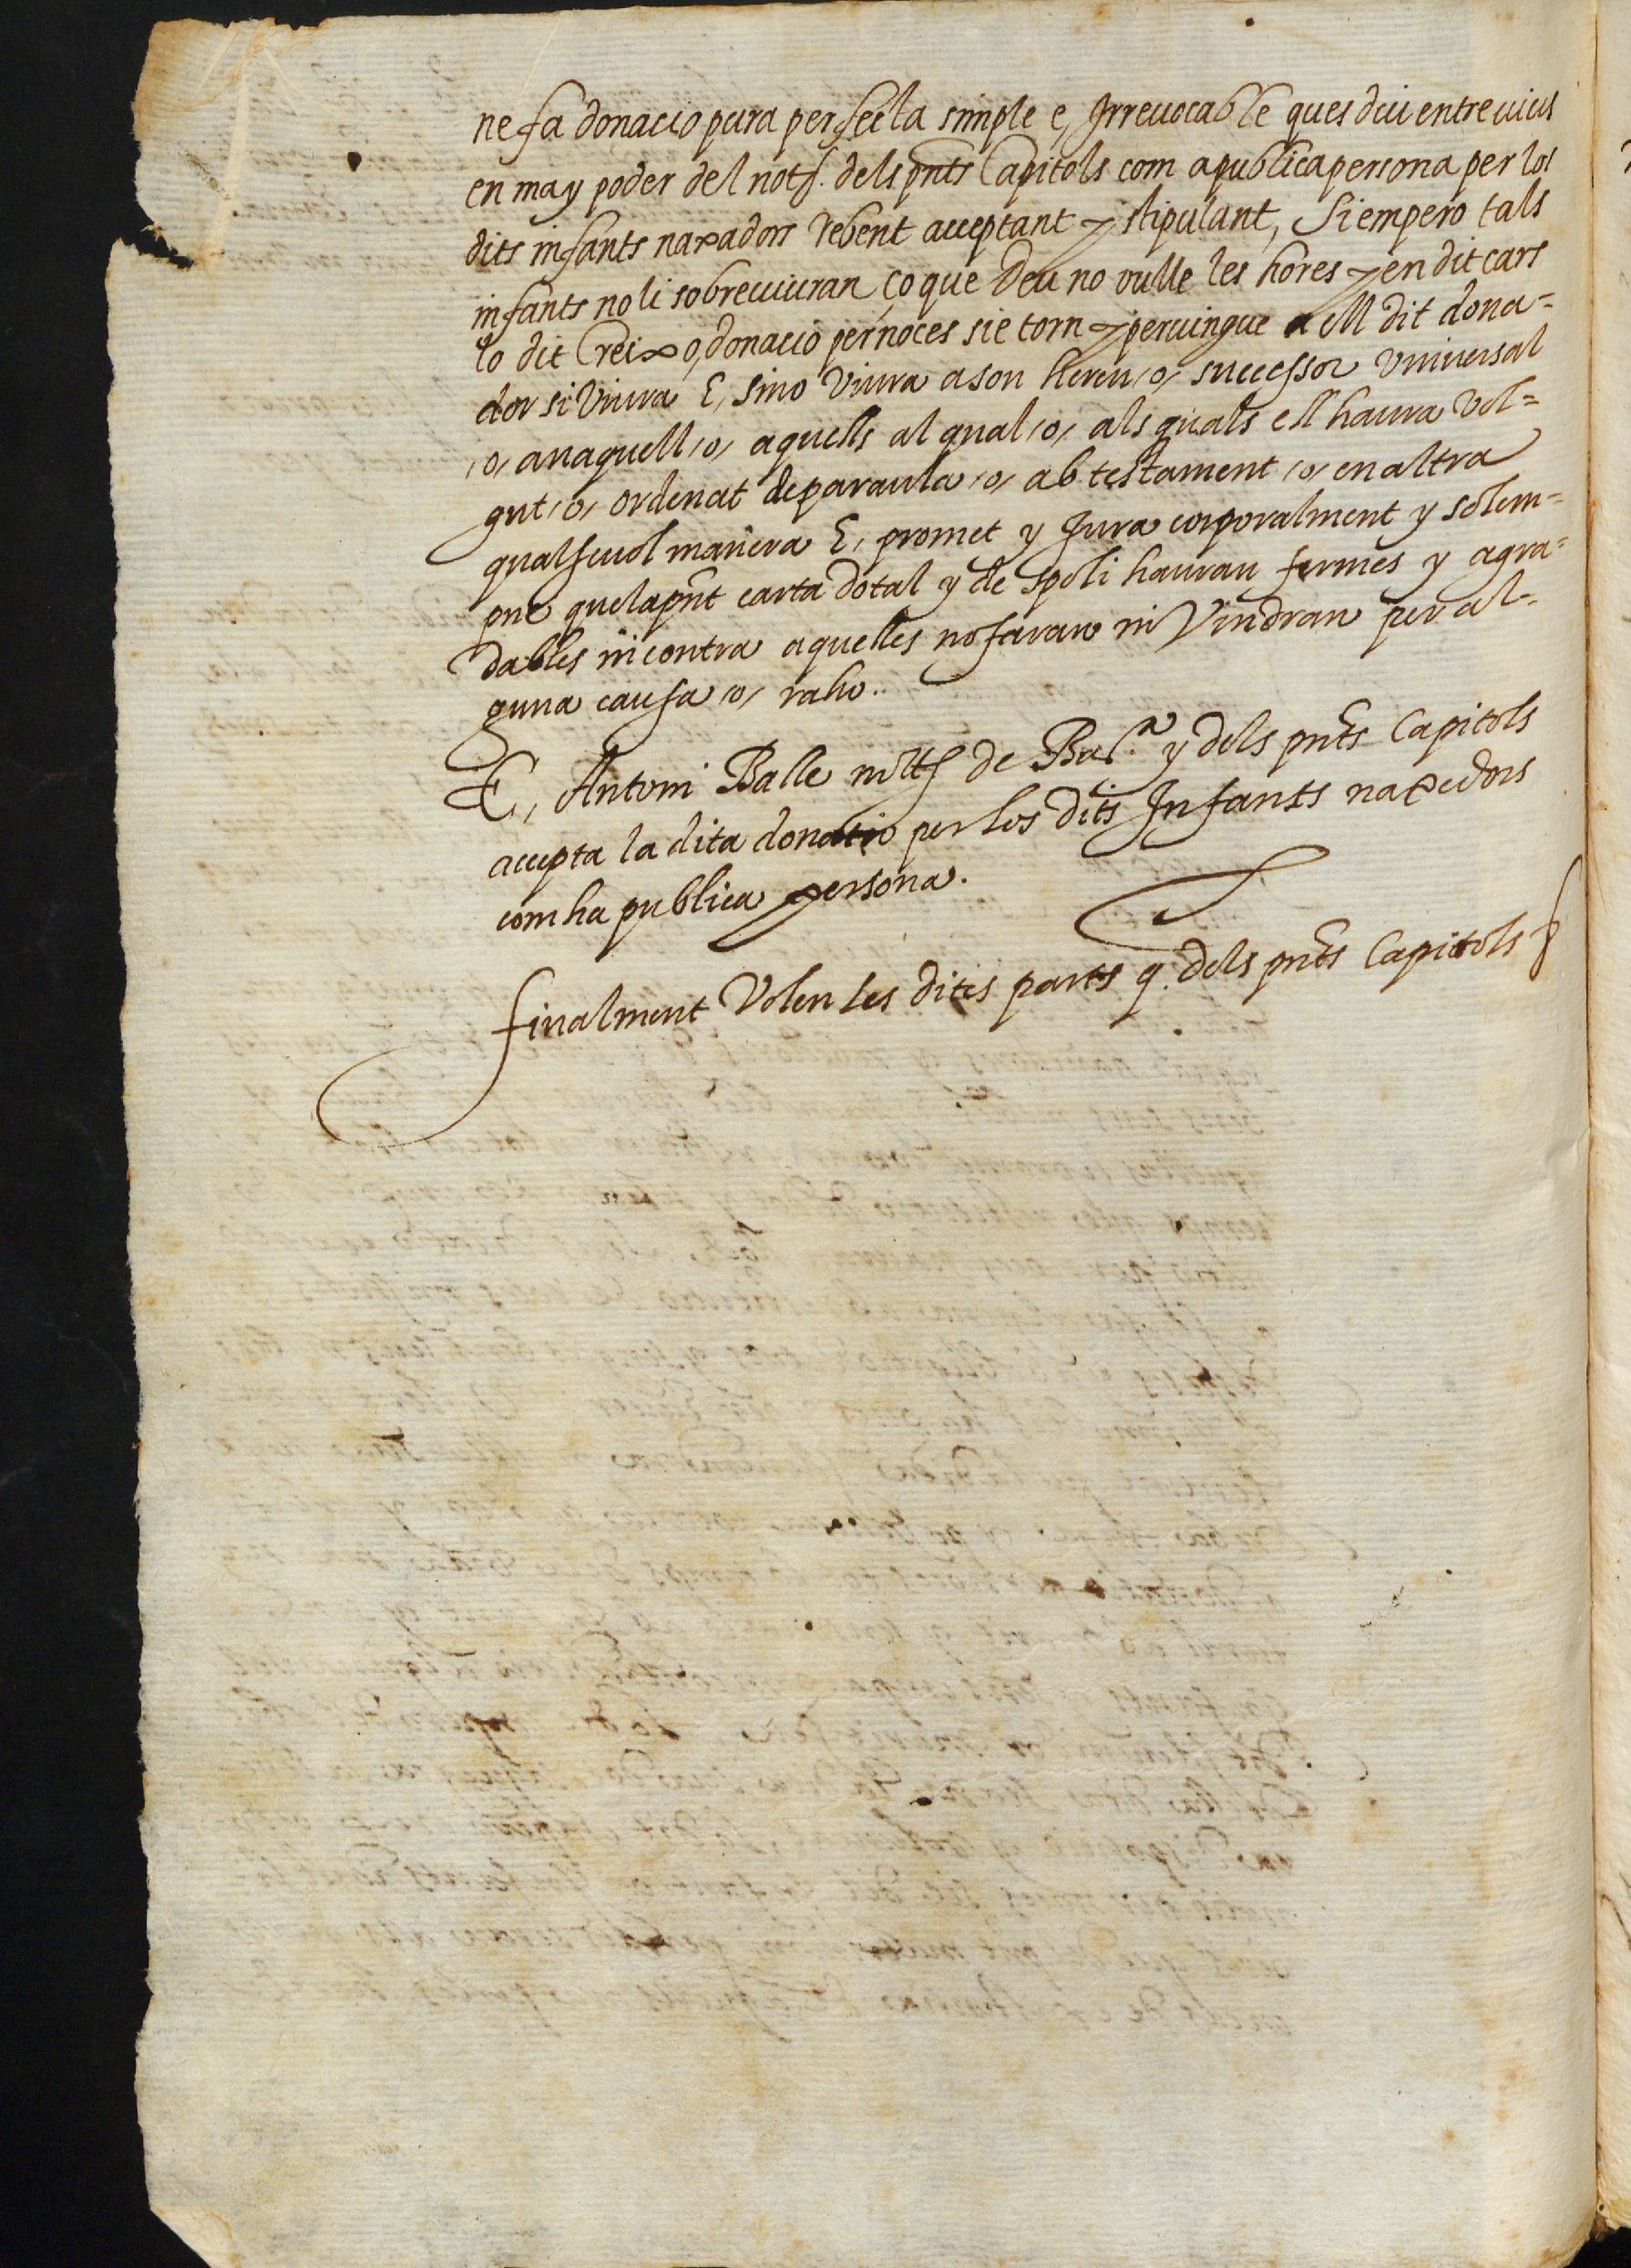 ne fa donacio pura perfecta simple e, Irreuocable ques diu entre uius
en ma y poder del notj. dels pnts Capitols com a publica persona per los
dits infants naxadors rebent acceptant y stipulant, Si empero tals
infants no li sobreuiuran ço que Deu no vulle les hores y en dit cars
lo dit Creix o, donacio per noces sie torn y peruingue a ell dit dona=
dor si Viura E, sino Viura a son hereu /o/ successor Vniuersal
/o/ an aquell /o/ aquells al qual /o/ als quals ell haura Vol=
gut /o/ ordenat de paraula /o/ ab testament /o/ en altra
qualseuol manera E, promet y Jura corporalment y solem=
pne que la pnt carta dotal y de spoli hauran fermes y agra=
dables ni contra aquelles no faran ni Vindran per al-
guna causa /o/ raho..
E, Antoni Balle nott de Bar.ª y dels pnts Capitols
accepta la dita donatio per los dits Infants naxedors
com ha publica persona.
finalment Volen les dites parts q. dels pnts Capitols